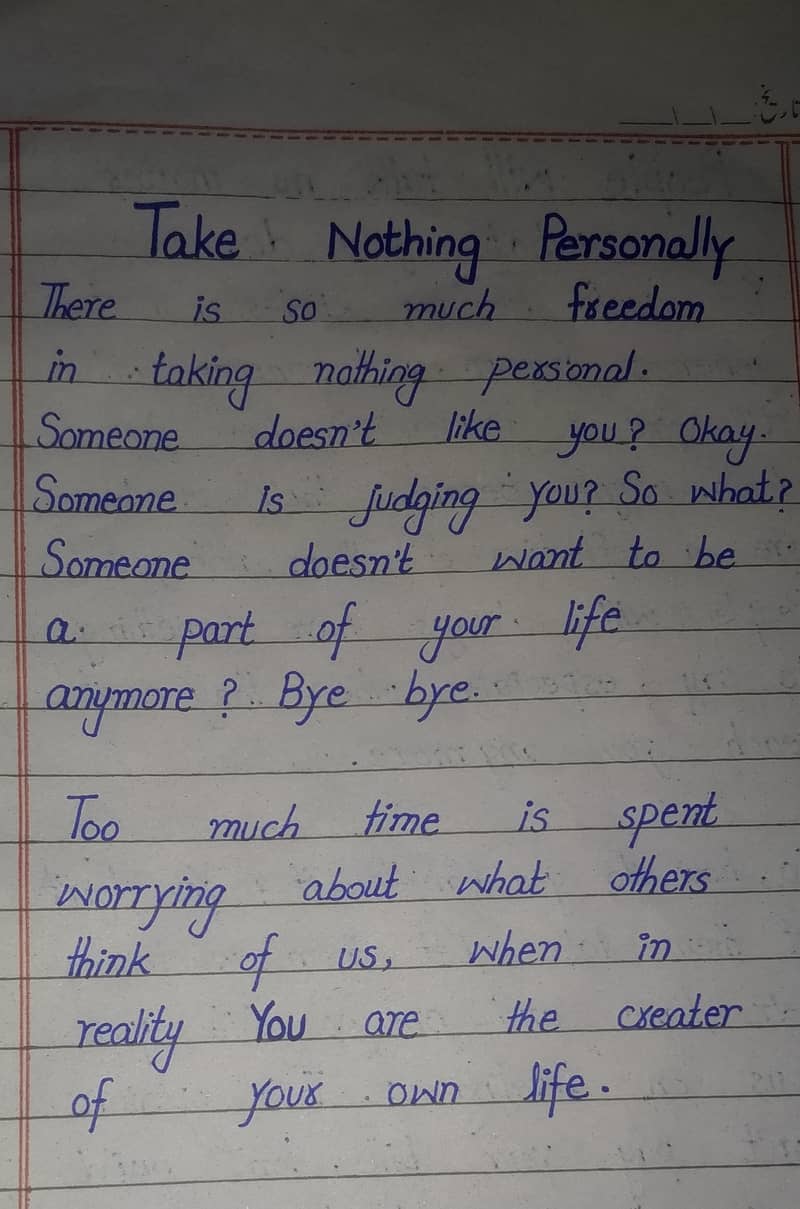 تاریخ: __ ا __ ا __
Take Nothing Personally
There is so much freedom
in taking nothing personal.
Someone doesn't like you? Okay.
Someone is judging you? So what?
Someone doesn't want to be
a part of your life
anymore? Bye bye.
Too much time is spent
worrying about what others
think of us, when in
reality You are the creater
of your own life.